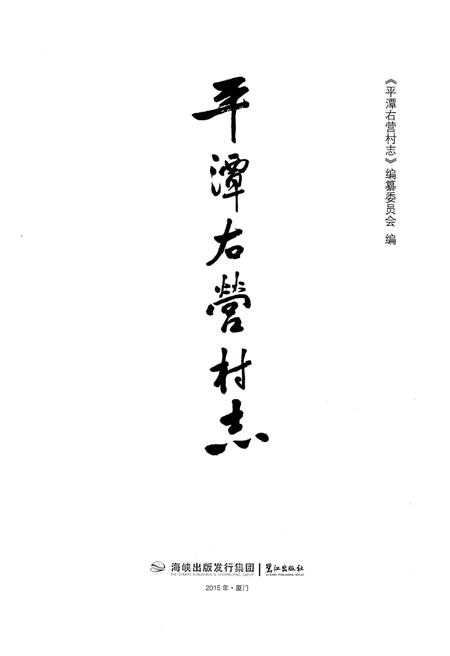 《平潭右营村志》编纂委员会 编
平潭右營村志
海峡出版发行集团
THE STRAITS PUBLISHING & DISTRIBUTING GROUP
鹭江出版社
LUJIANG PUBLISHING HOUSE
2015 年·厦门